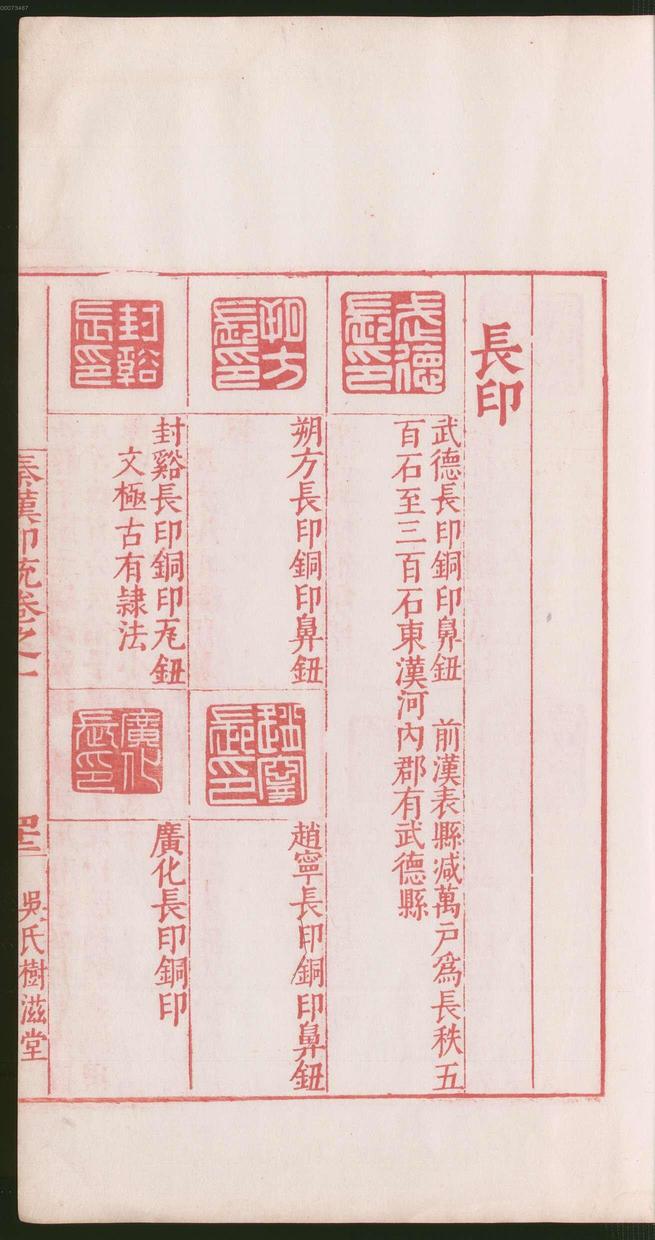 00073467
長印
武德長印
武德長印銅印鼻鈕　前漢表縣減萬戶爲長秩五
百石至三百石東漢河內郡有武德縣
朔方長印
朔方長印銅印鼻鈕
趙寧長印
趙寧長印銅印鼻鈕
封谿長印
封谿長印銅印瓦鈕
文極古有隸法
廣化長印
廣化長印銅印
秦漢印統卷之一
吳氏樹滋堂